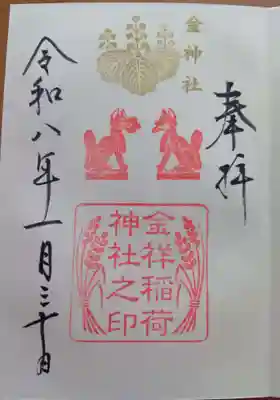 奉拝
金神社
金祥稲荷
神社之印
令和八年一月三十日